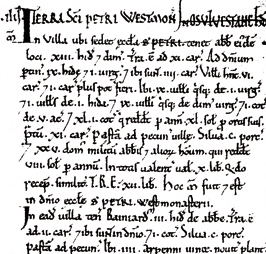 .iiii. TERRA SCI PETRI WESTMON. IN OSULVESTANE HĎ.
In Villa ubi sedet æccła S. PETRI tenet abb eiusdē
loci .xiii. hiđ 7 dimiđ. Tra. ē ad .xi. car. Ad dnium
ptin .ix. hidæ 7 .i. uirg. 7 ibi sunt .iiii. car. Vitti hnt .vi.
car. 7 i. car plus pot fieri. Ibi .ix. uitti qsq; de .i. uirg.
7 i. uitts de .i. hida. 7 ix. uitti qsq; de dim uirg. 7 i. cot
de .v. ac̄. 7 xl.i. cot q redđt p ann .xl. sol p ortis suis.
Ptū .xi. car. Pasta ad pecun uillæ. Silua .c. porc.
7 xxv. dom militū abbis 7 aliorū houm. qui redđt
viii. sol p annū. In totis ualent uał .x. lib. Qđo
recep similit. T.R.E. xii. lib. Hoc m̄ fuit 7 est
in dnio æcclæ S PETRI. westmonasterii.
In ead uilla ten Bainiard .iii. hiđ de abbe. Tra. ē
ad .ii. car. 7 ibi sunt in dnio. 7 i. cot. Silua .c. porc.
Pasta ad pecun. Ibi .iiii. arpenni uineæ nouit plant